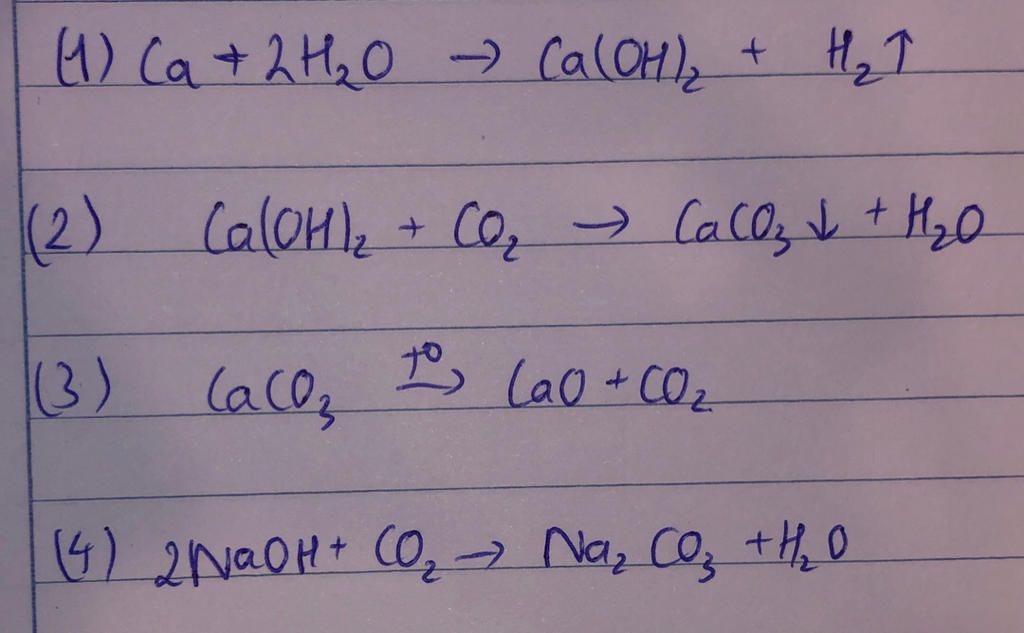 (1) Ca + 2H₂O → Ca(OH)₂ + H₂↑
(2) Ca(OH)₂ + CO₂ → CaCO₃↓ + H₂O
(3) CaCO₃ t⁰→ CaO + CO₂
(4) 2NaOH + CO₂ → Na₂CO₃ + H₂O